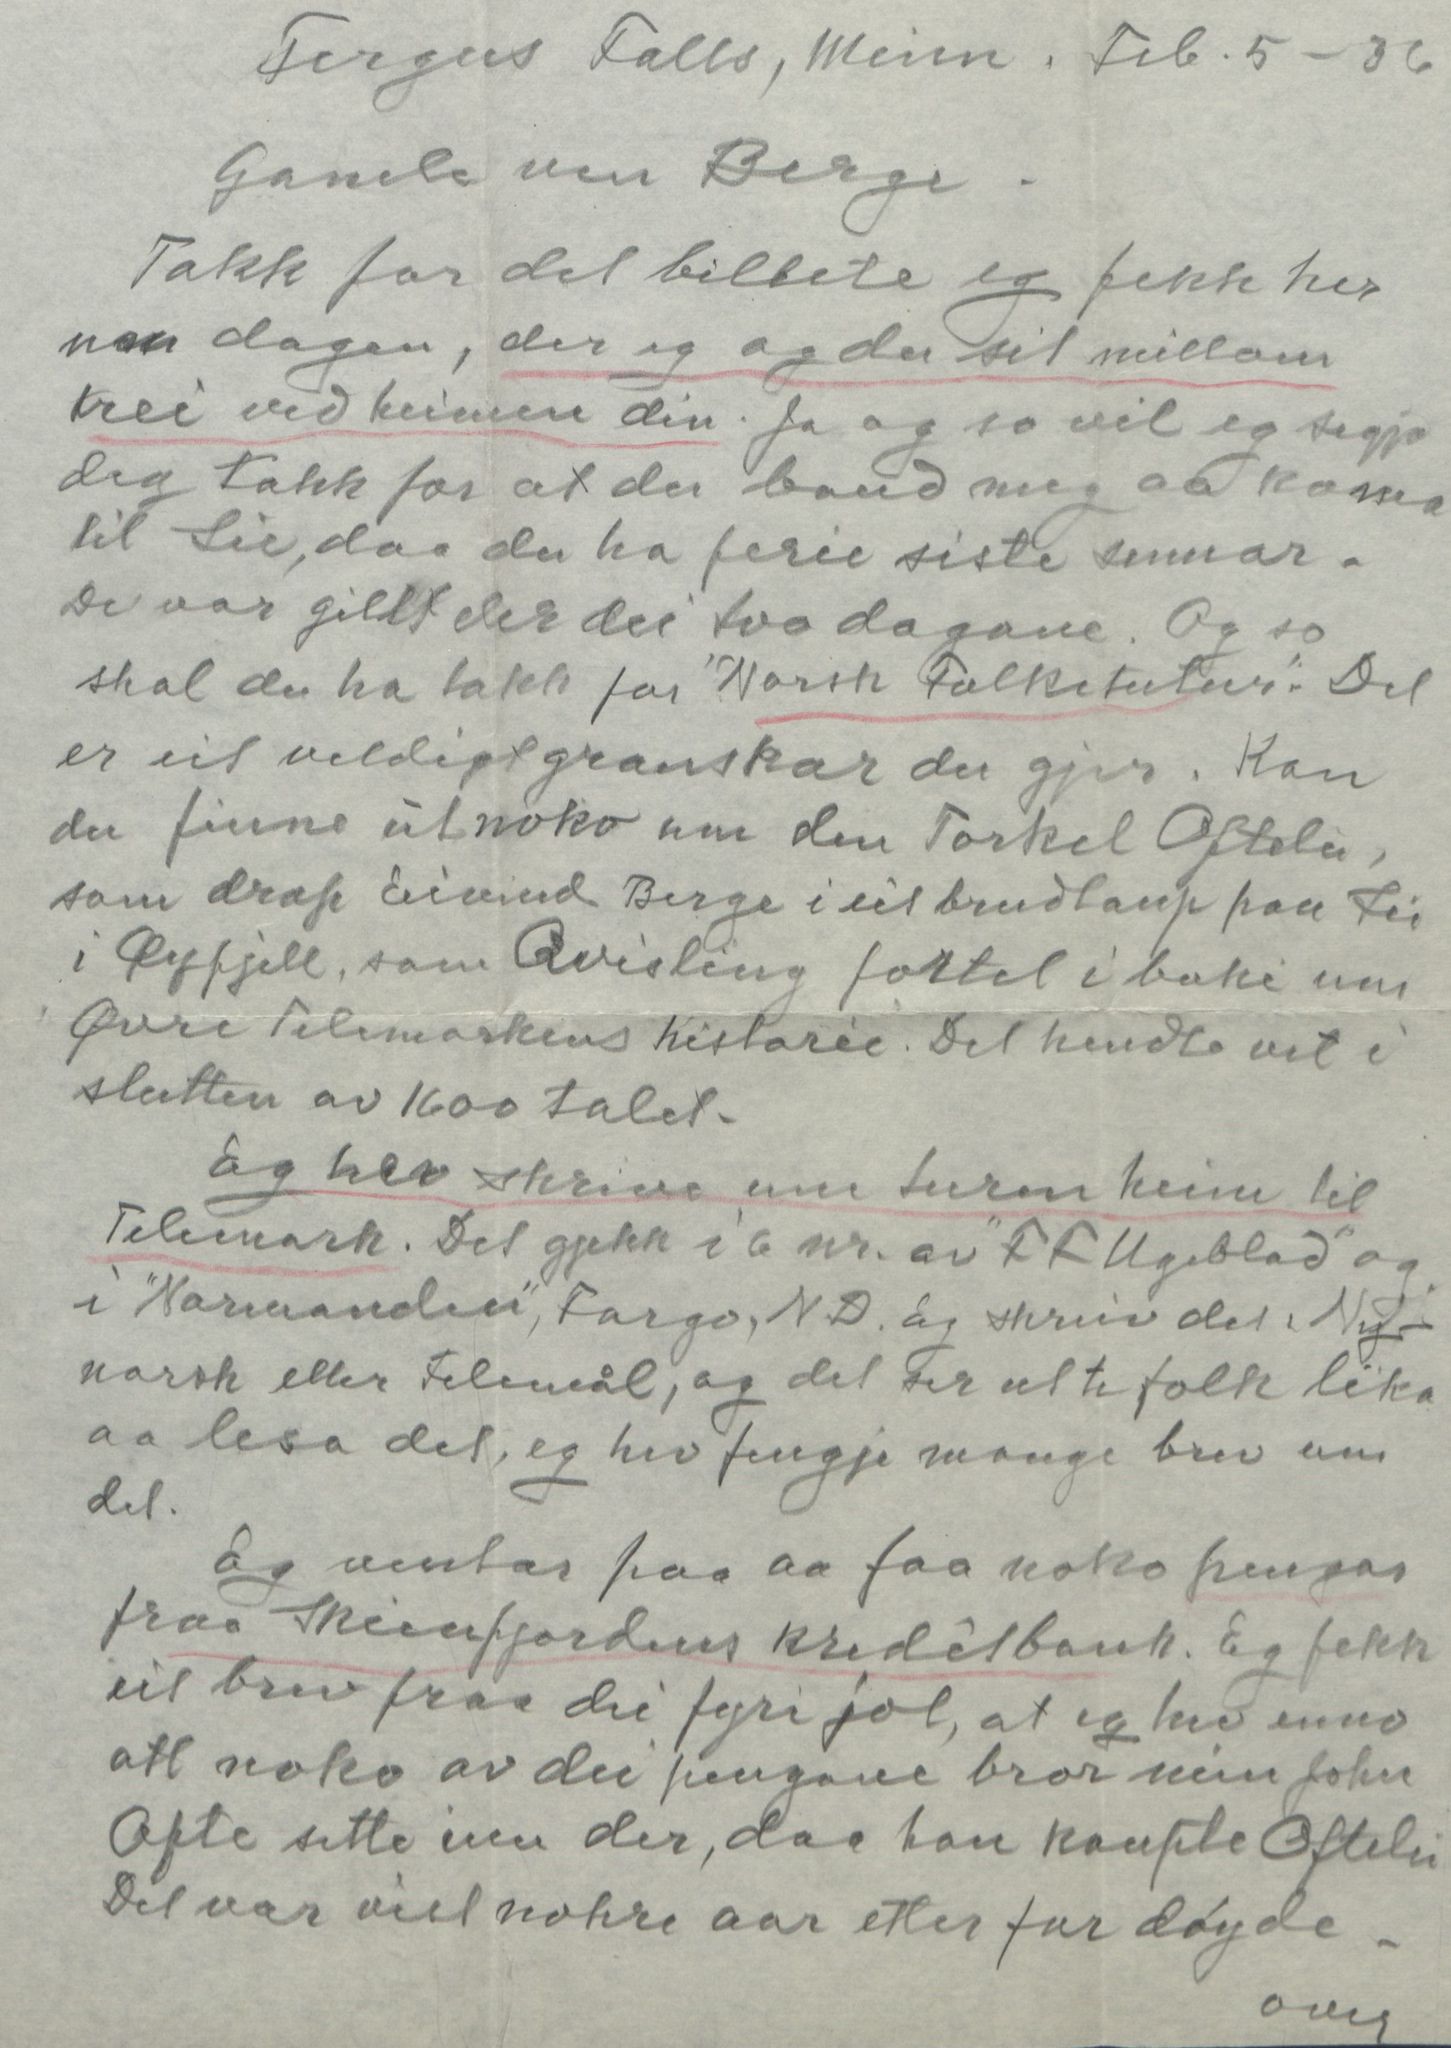 Fergus Falls, Minn. Feb. 5 - 36
Gamle ven Berge -
Takk for det bilbete eg fekk her
non dagen, der eg og du sit millom
trei ved heimen din. Ja og so vil eg segja
deg takk for at du baud meg aa koma
til Lie, daa du ha ferie siste sumar.
De var gillt der dei two dagane. Og so
skal du ha takk for "Norsk Folketutur". Det
er eit veldigt granskar du gjer. Kan
du finne ut noko um den Torkel Oftelie,
som drap Eivind Berge i eit brudlaup paa Lie
i Øyfjell, som Qvisling fortel i boki um
Øvre Telemarkens historie. Det hendte vet i
slutten av 1600 talet.
Eg hev skrive um turen heim til
Telemark. Det gjekk i 6 nr. av "F F Ugeblad" og
i "Normanden", Fargo, N.D. Eg skreiv det i Ny-
norsk eller Telemål, og det ser ut te folk lika
aa lesa det, eg hev fengje mange brev um
det.
Eg ventar paa aa faa noko pengar
fraa Skiensfjordens kreditbank. Eg fekk
eit brev fraa dei fyri jol, at eg hev enno
att noko av dei pengane bror min John
Ofte sette inn der, daa han kaupte Oftelie
Det var visst nokre aar etter far døyde -
over